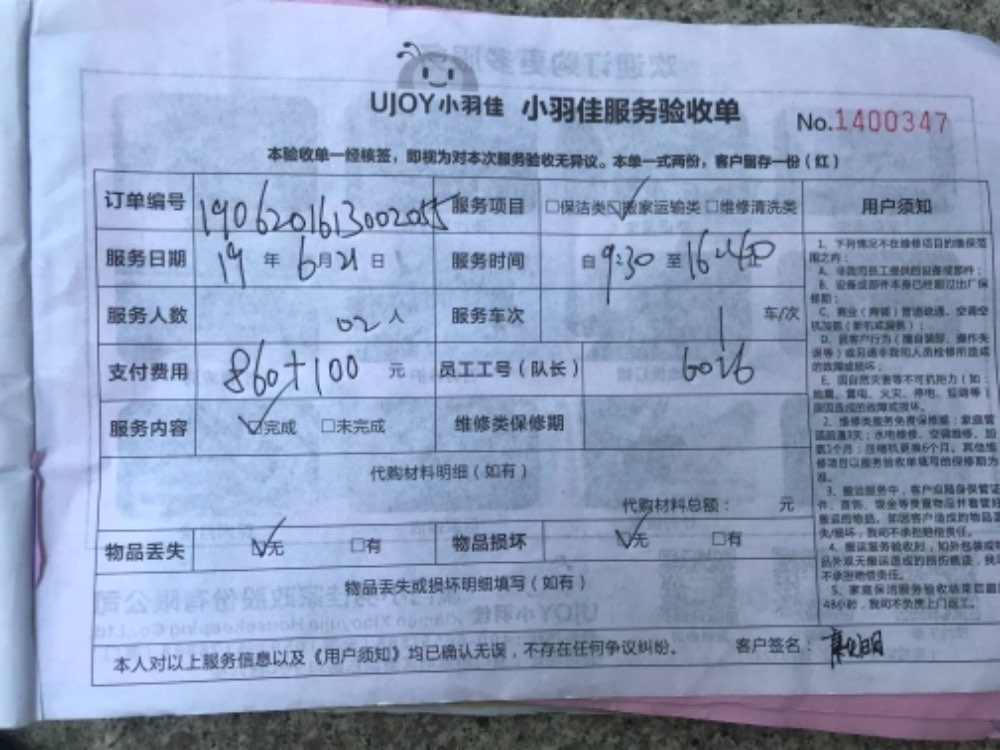 UJOY小羽佳 小羽佳服务验收单 No.1400347
本验收单一经核签,即视为对本次服务验收无异议。本单一式两份,客户留存一份(红)
订单编号 19062016130020 服务项目 □保洁类☑搬家运输类□维修清洗类 用户须知
服务日期 19 年 6月21日 服务时间 自9:30至16:40
服务人数 02人 服务车次 1 车/次
支付费用 860+100 元 员工工号(队长) 6026
服务内容 ☑完成 □未完成 维修类保修期
代购材料明细(如有)
代购材料总额: 元
物品丢失 ☑无 □有 物品损坏 ☑无 □有
物品丢失或损坏明细填写(如有)
本人对以上服务信息以及《用户须知》均已确认无误,不存在任何争议纠纷。 客户签名:
1、下列情况不在维修项目的维保范
围之内:
A、非我司员工提供的设备或部件;
B、设备或部件本身已经超过出厂保
修期;
C、商业(商铺)管道疏通、空调空
机加氨(新机或漏氨);
D、因客户行为(擅自装卸、操作失
误等)或另请非我司人员检修所造成
的故障或损坏;
E、因自然灾害等不可抗拒力(如:
地震、雷电、火灾、停电、短路等)
原因造成的故障或损坏。
2、维修类服务免费保修期:家庭管
道疏通3天;水电维修、空调维修、加
氨1个月;压缩机更换6个月。其他维
修项目以服务验收单填写的保修期为
准。
3、搬运服务中,客户应随身保管证
件、首饰、现金等贵重物品并看管好
搬运的物品。如因客户造成的物品丢
失/损坏,我司不承担赔偿责任。
4、搬运服务验收时,如外包装或物
品外观无搬运造成的损伤痕迹,我司
不承担赔偿责任。
5、家庭保洁服务验收结束后超
48小时,我司不负责上门返工。